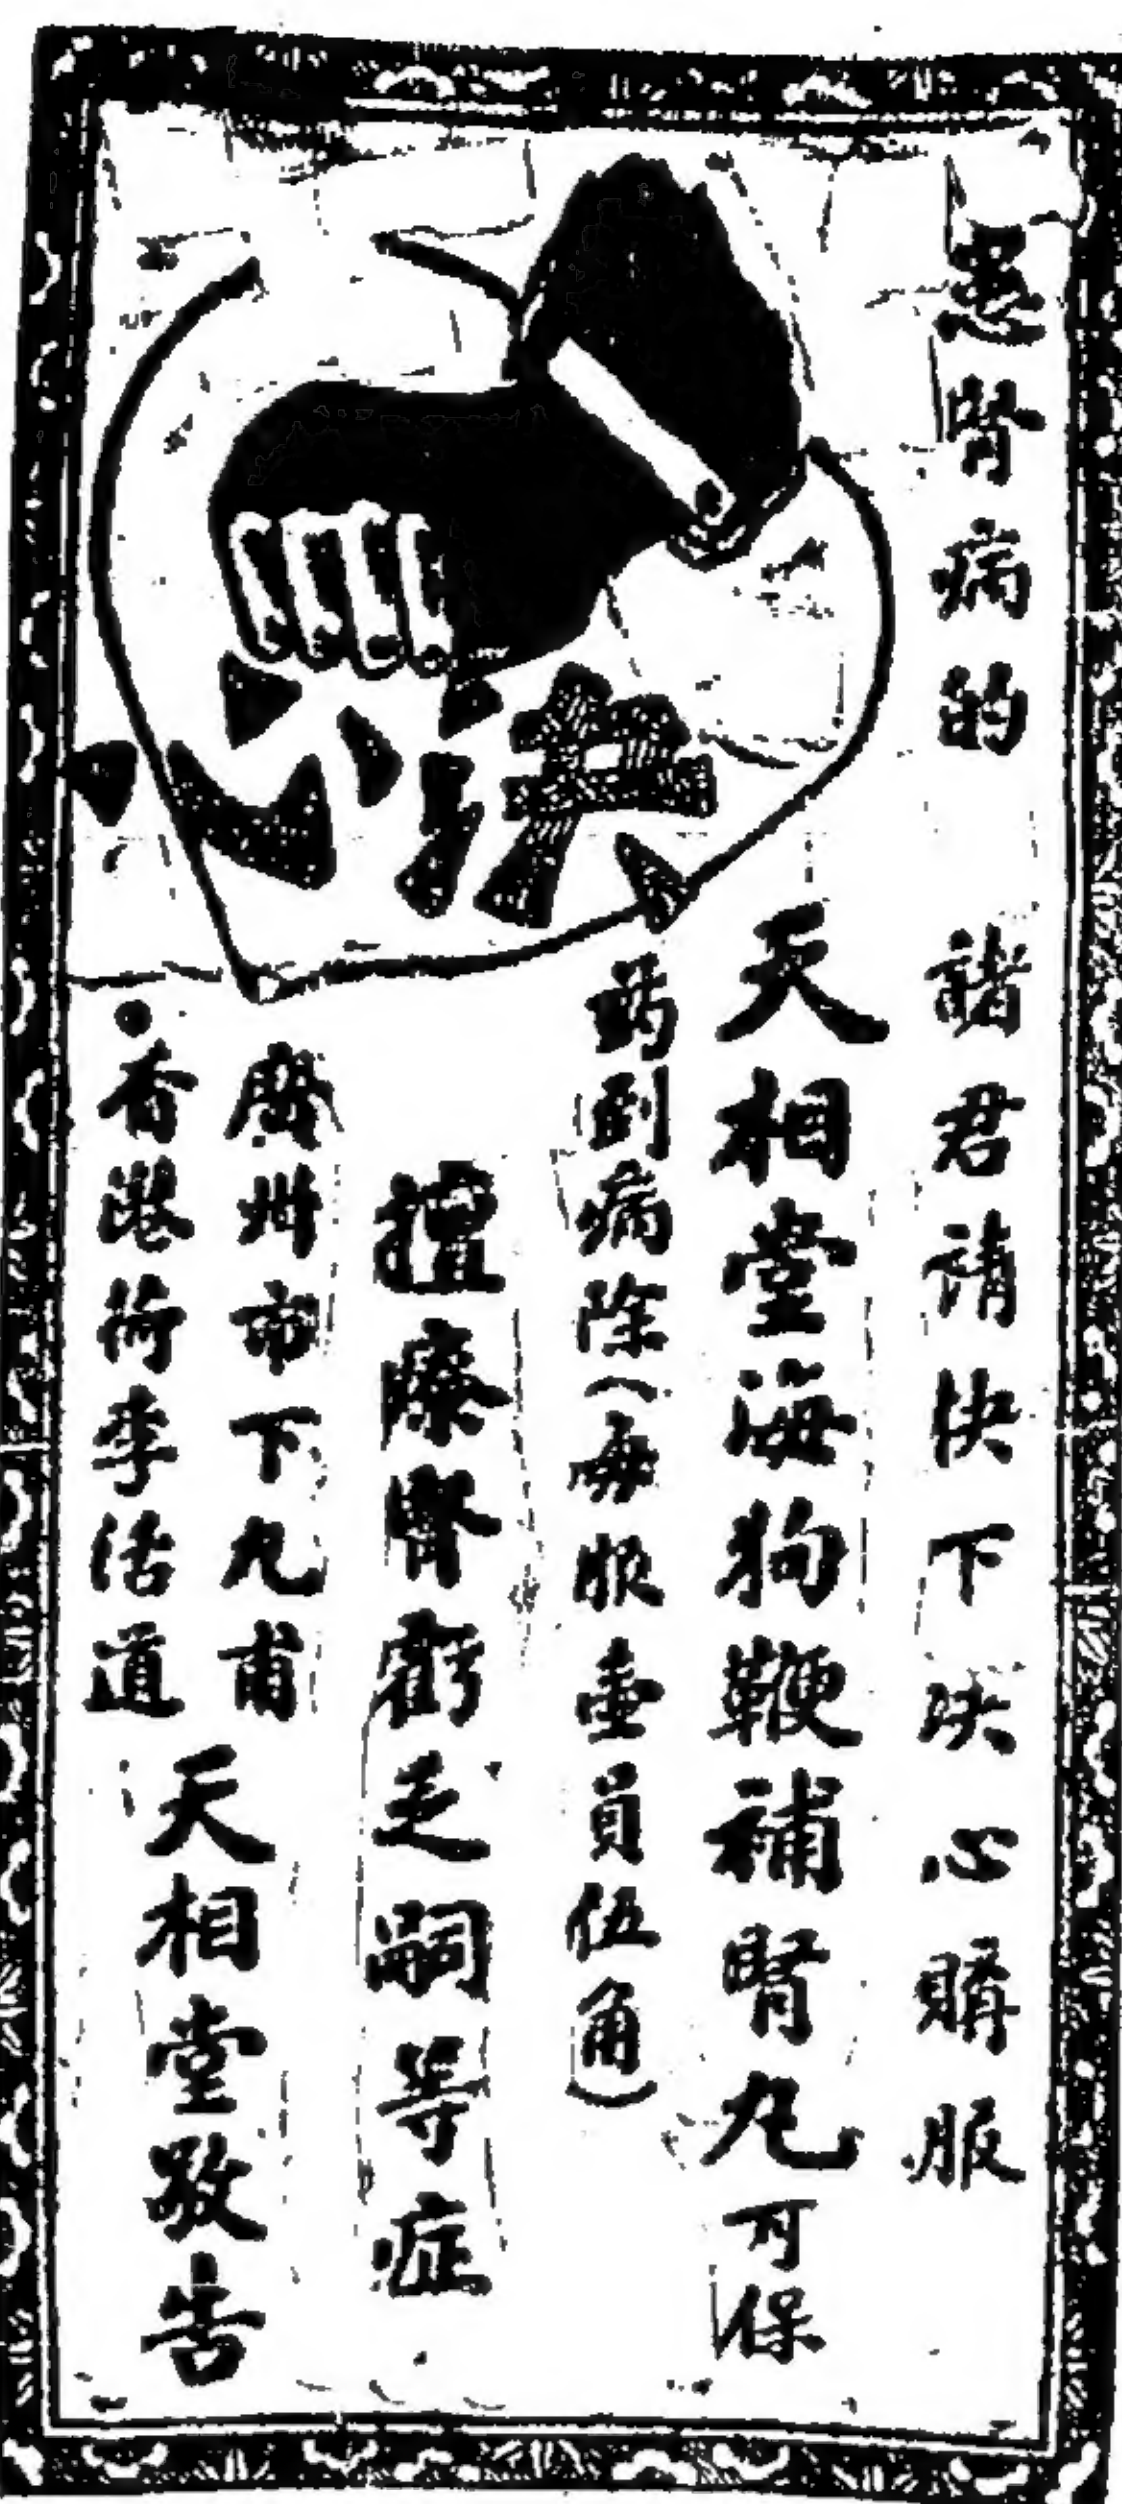 患腎病的 諸君請快下決心購服
天相堂海狗鞭補腎丸可保
药到病除(每服壹員伍角)
擅療腎虧乏嗣等症
廣州市下九甫
香港荷李活道
天相堂敬告
決心